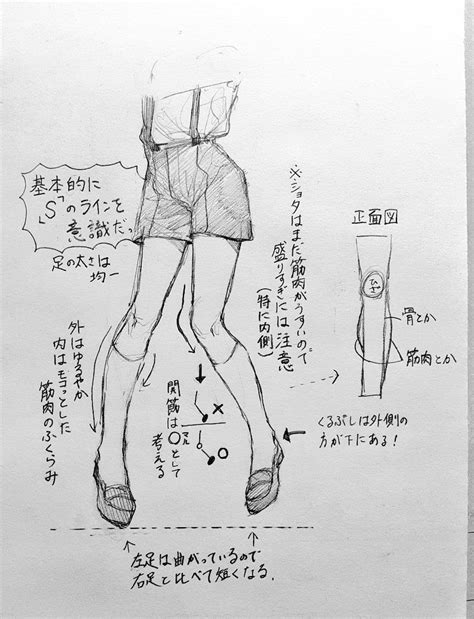 基本的に
「S」のラインを
意識だっ
足の太さは
均一
※ショタはまだ筋肉がうすいので
盛りすぎには注意
(特に内側)
正面図
ひざ
骨とか
筋肉とか
くるぶしは外側の
方が下にある!
外はゆるやか
内はモコっとした
筋肉のふくらみ
関筋は○として
考える
左足は曲がっているので
右足と比べて短くなる.